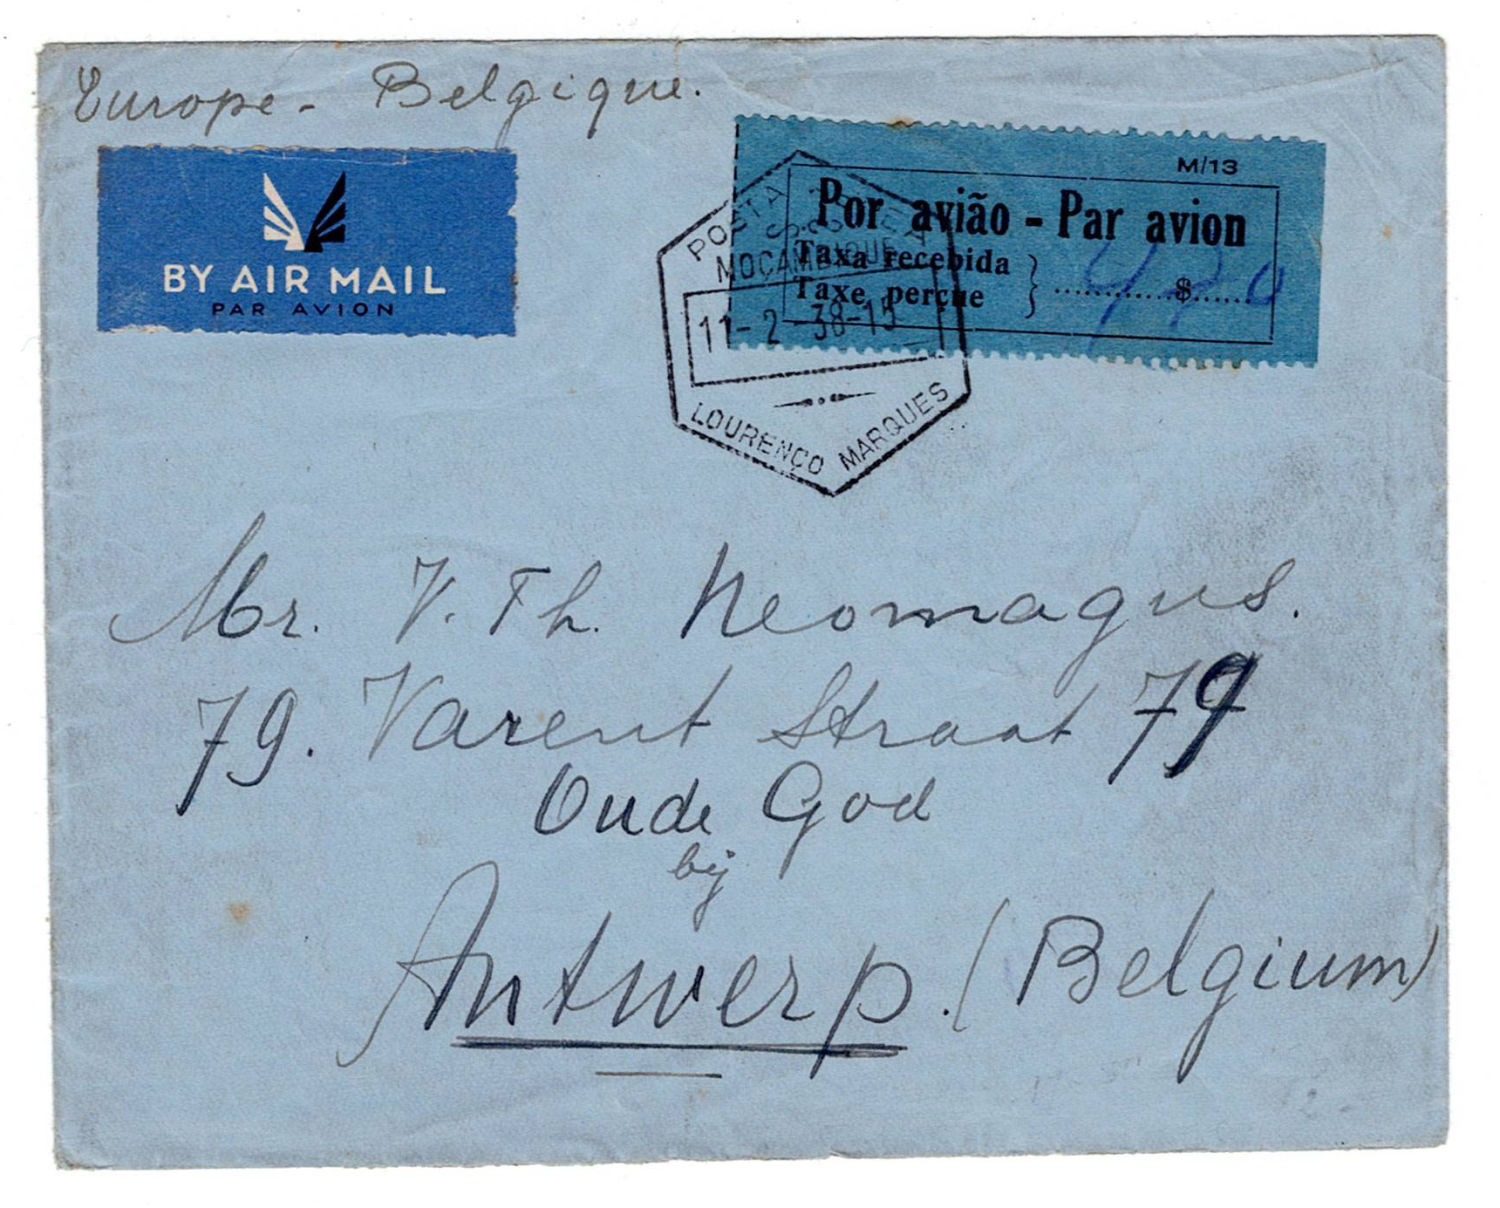 Europe - Belgique.
BY AIR MAIL
PAR AVION
M/13
Por avião - Par avion
Taxa recebida
Taxe perçue
$
POSTA
MOÇAMBIQUE
11-2-38-15
LOURENÇO MARQUES
Mr. V. Th. Neomagus.
79. Varent Straat 79
Oude God
bij
Antwerp. (Belgium)